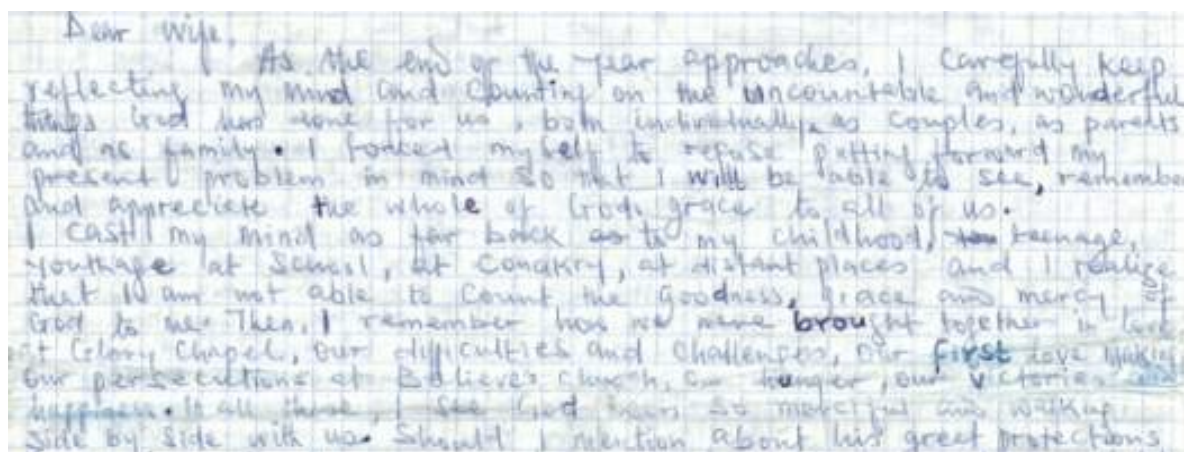 Dear Wife,
As the end of the year approaches, I carefully keep
reflecting my mind and counting on the uncountable and wonderful
things God has done for us, both individually, as couples, as parents
and as family. I forced myself to refuse putting forward my
present problem in mind so that I will be able to see, remember
and appreciate the whole of God's grace to all of us.
I cast my mind as far back as to my childhood, teenage,
youthage at School, at Conakry, at distant places and I realize
that I am not able to count the goodness, grace and mercy of
God to me. Then, I remember how we were brought together in love
at Glory Chapel, our difficulties and challenges, our first love making
our persecutions at Believe's Church, our hunger, our victories and
happiness. In all these, I see God been so merciful and walking
side by side with us. Should I mention about his great protections,